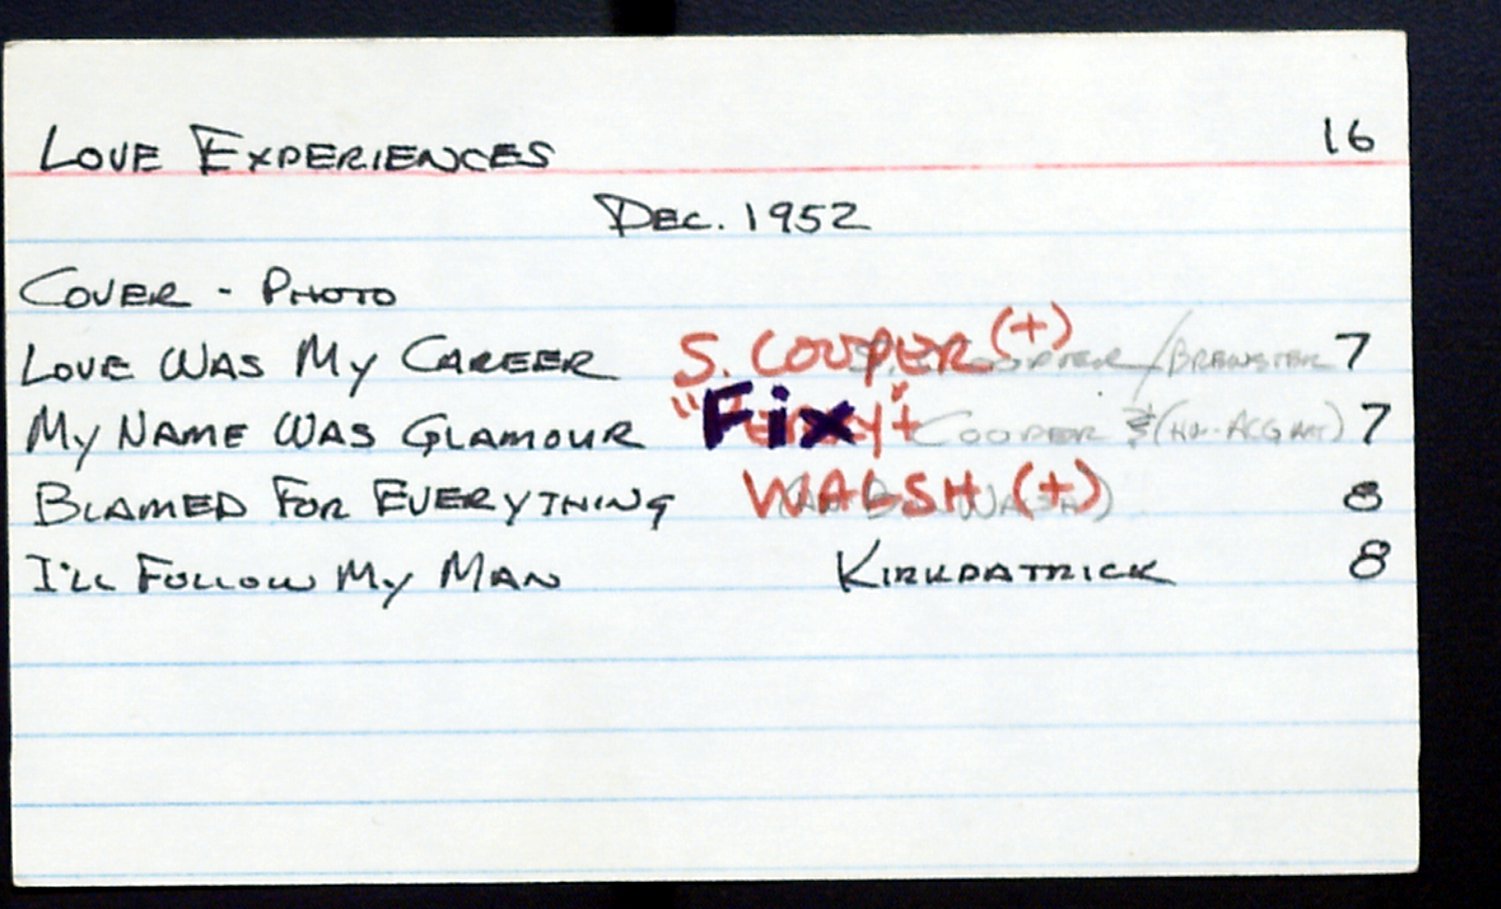 LOVE EXPERIENCES 16
DEC. 1952
COVER - PHOTO
LOVE WAS MY CAREER S. COOPER (+) S. COOPER / BREWSTER 7
MY NAME WAS GLAMOUR Fix COOPER 7
BLAMED FOR EVERYTHING WALSH (+) WALSH) 8
I'LL FOLLOW MY MAN KIRKPATRICK 8